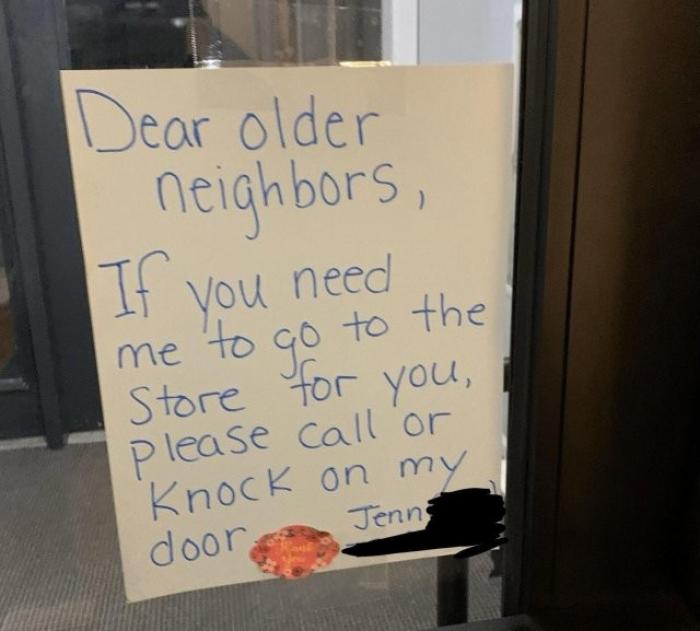 Dear older
neighbors,
If you need
me to go to the
Store for you,
please call or
Knock on my
door
Jenn
Thank
you